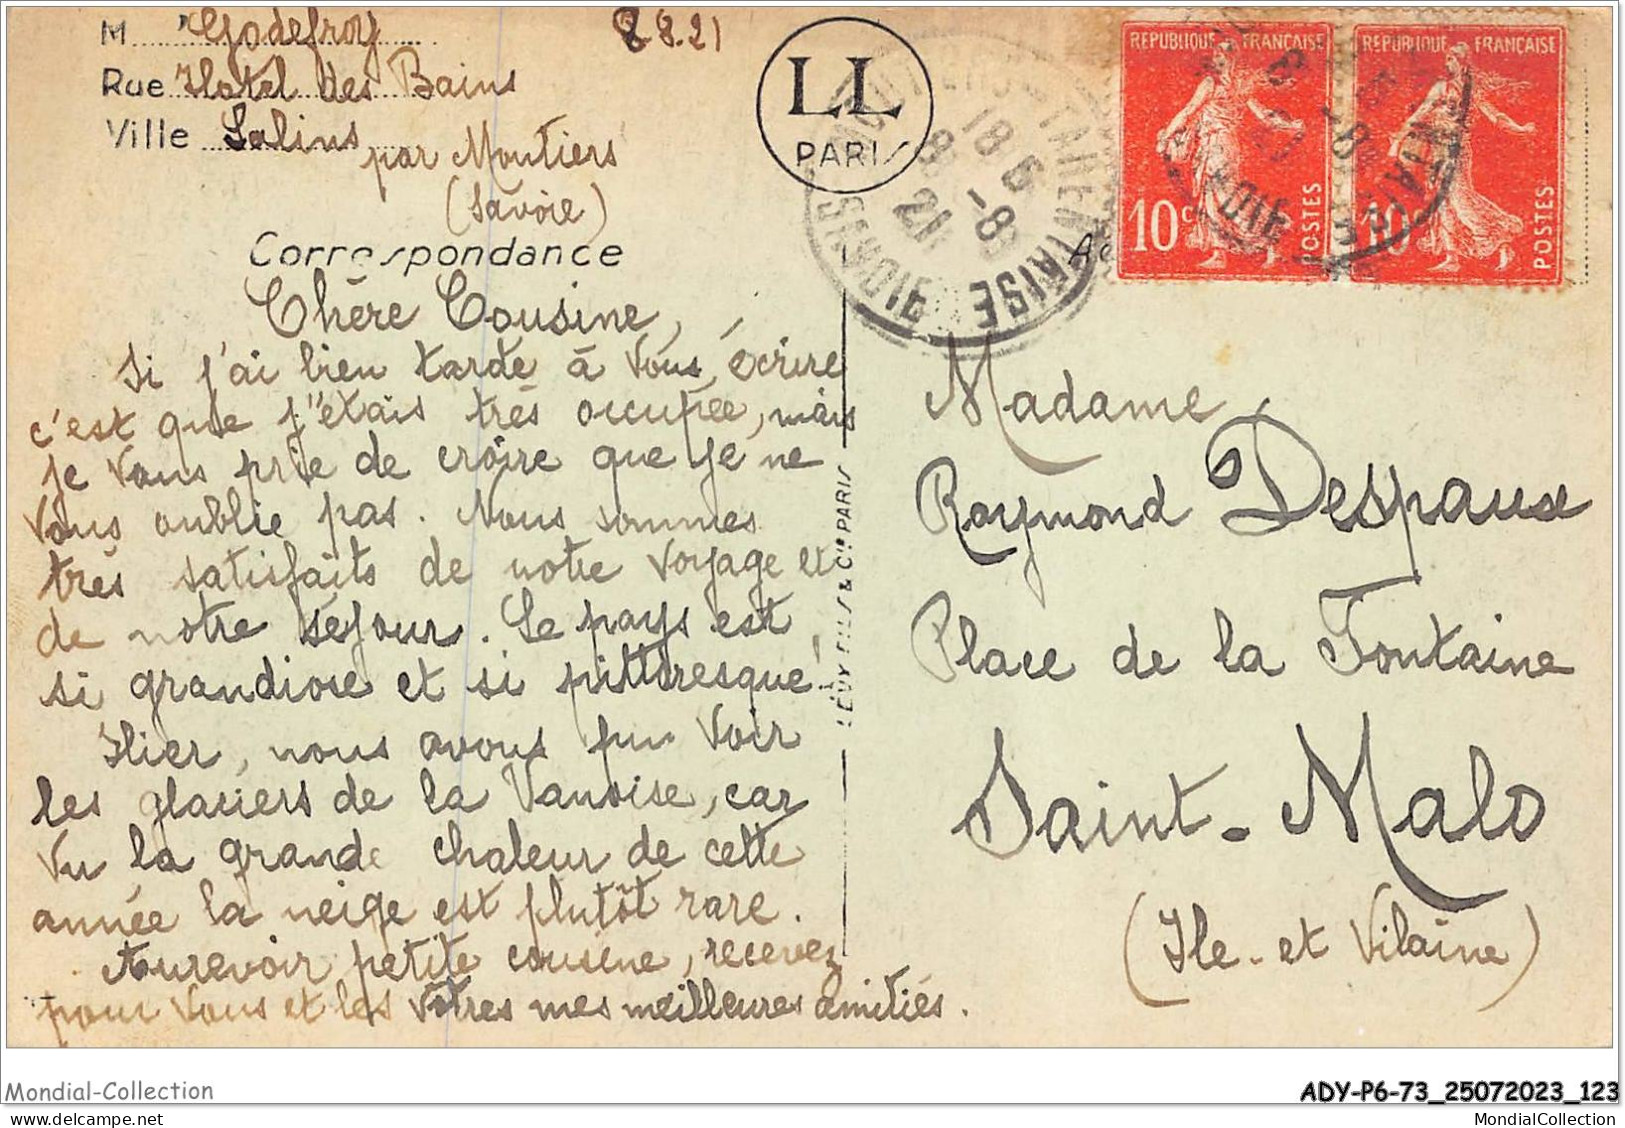 M. Godefroy 8 8.21
Rue Hotel des Bains
Ville Salins par Moutiers
(Savoie)
LL
PARIS
MOUTIERS-TARENTAISE
18
6 -8
21
SAVOIE
REPUBLIQUE FRANÇAISE
10c
POSTES
REPUBLIQUE FRANÇAISE
10c
POSTES
Correspondance
Chère Cousine,
Si j'ai bien tardé à vous écrire
c'est que j'étais très occupée, mais
je vous prie de croire que je ne
vous oublie pas. Nous sommes
très satisfaits de notre voyage et
de notre séjour. Le pays est
si grandiose et si pittoresque!
Hier, nous avons pu voir
les glaciers de la Vanoise, car
vu la grande chaleur de cette
année la neige est plutôt rare.
Aurevoir petite cousine, recevez
pour vous et les vôtres mes meilleures amitiés.
LÉVY FILS & Cie PARIS
Madame
Raymond Despaux
Place de la Fontaine
Saint-Malo
(Ile-et Vilaine)
Mondial-Collection
ADY-P6-73_25072023_123
MondialCollection